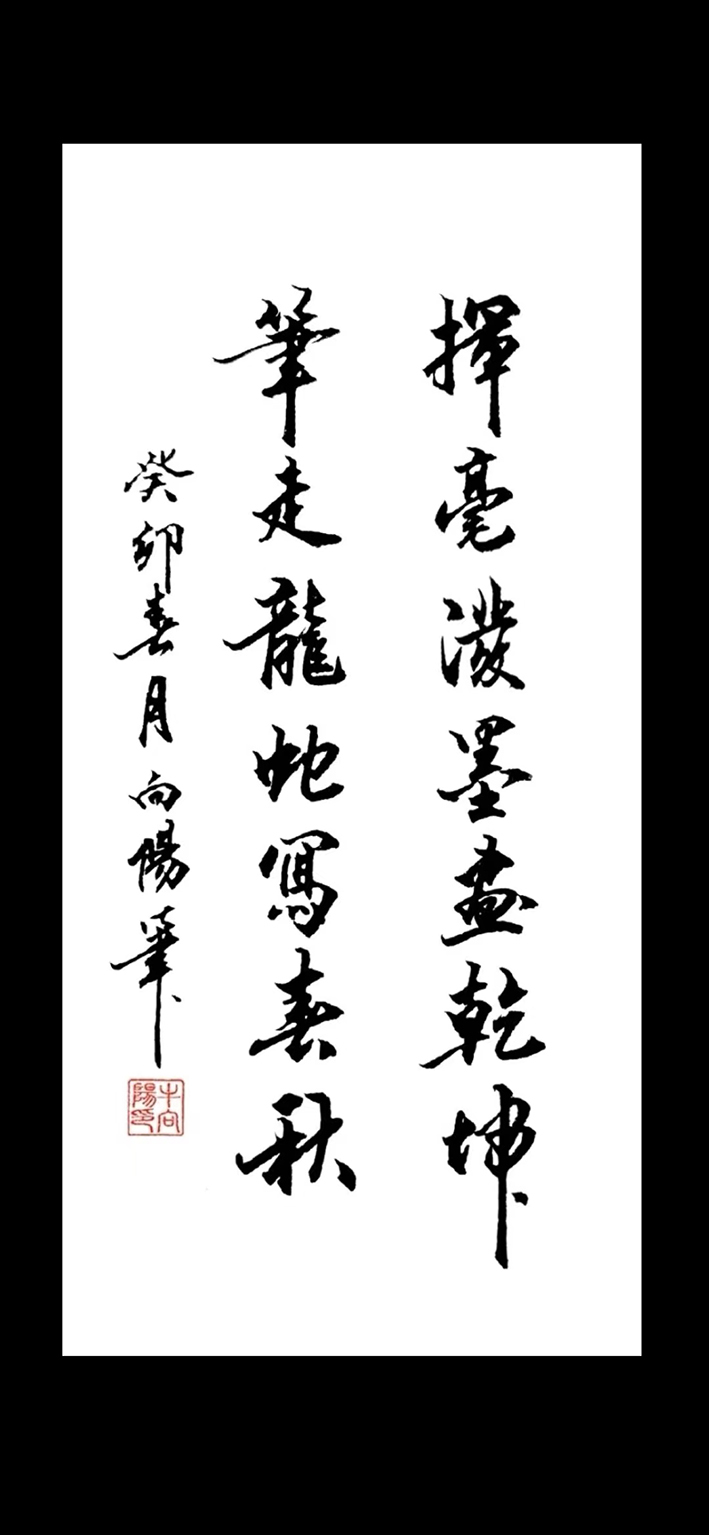 揮毫潑墨畫乾坤
筆走龍蛇寫春秋
癸卯春月向陽筆
牛向
陽印